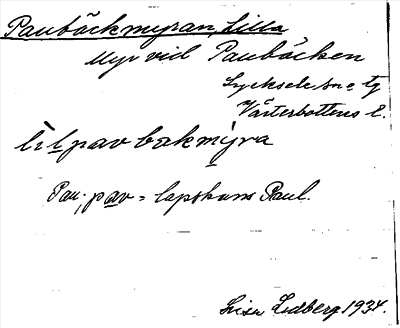 Paubäckmyran, Lilla
Myr vid Paubäcken
Lycksele sn o tg
Västerbottens l.
lìlpavbækmýra
Pau-, pav = lapskans Paul.
Lisa Lidberg 1934.